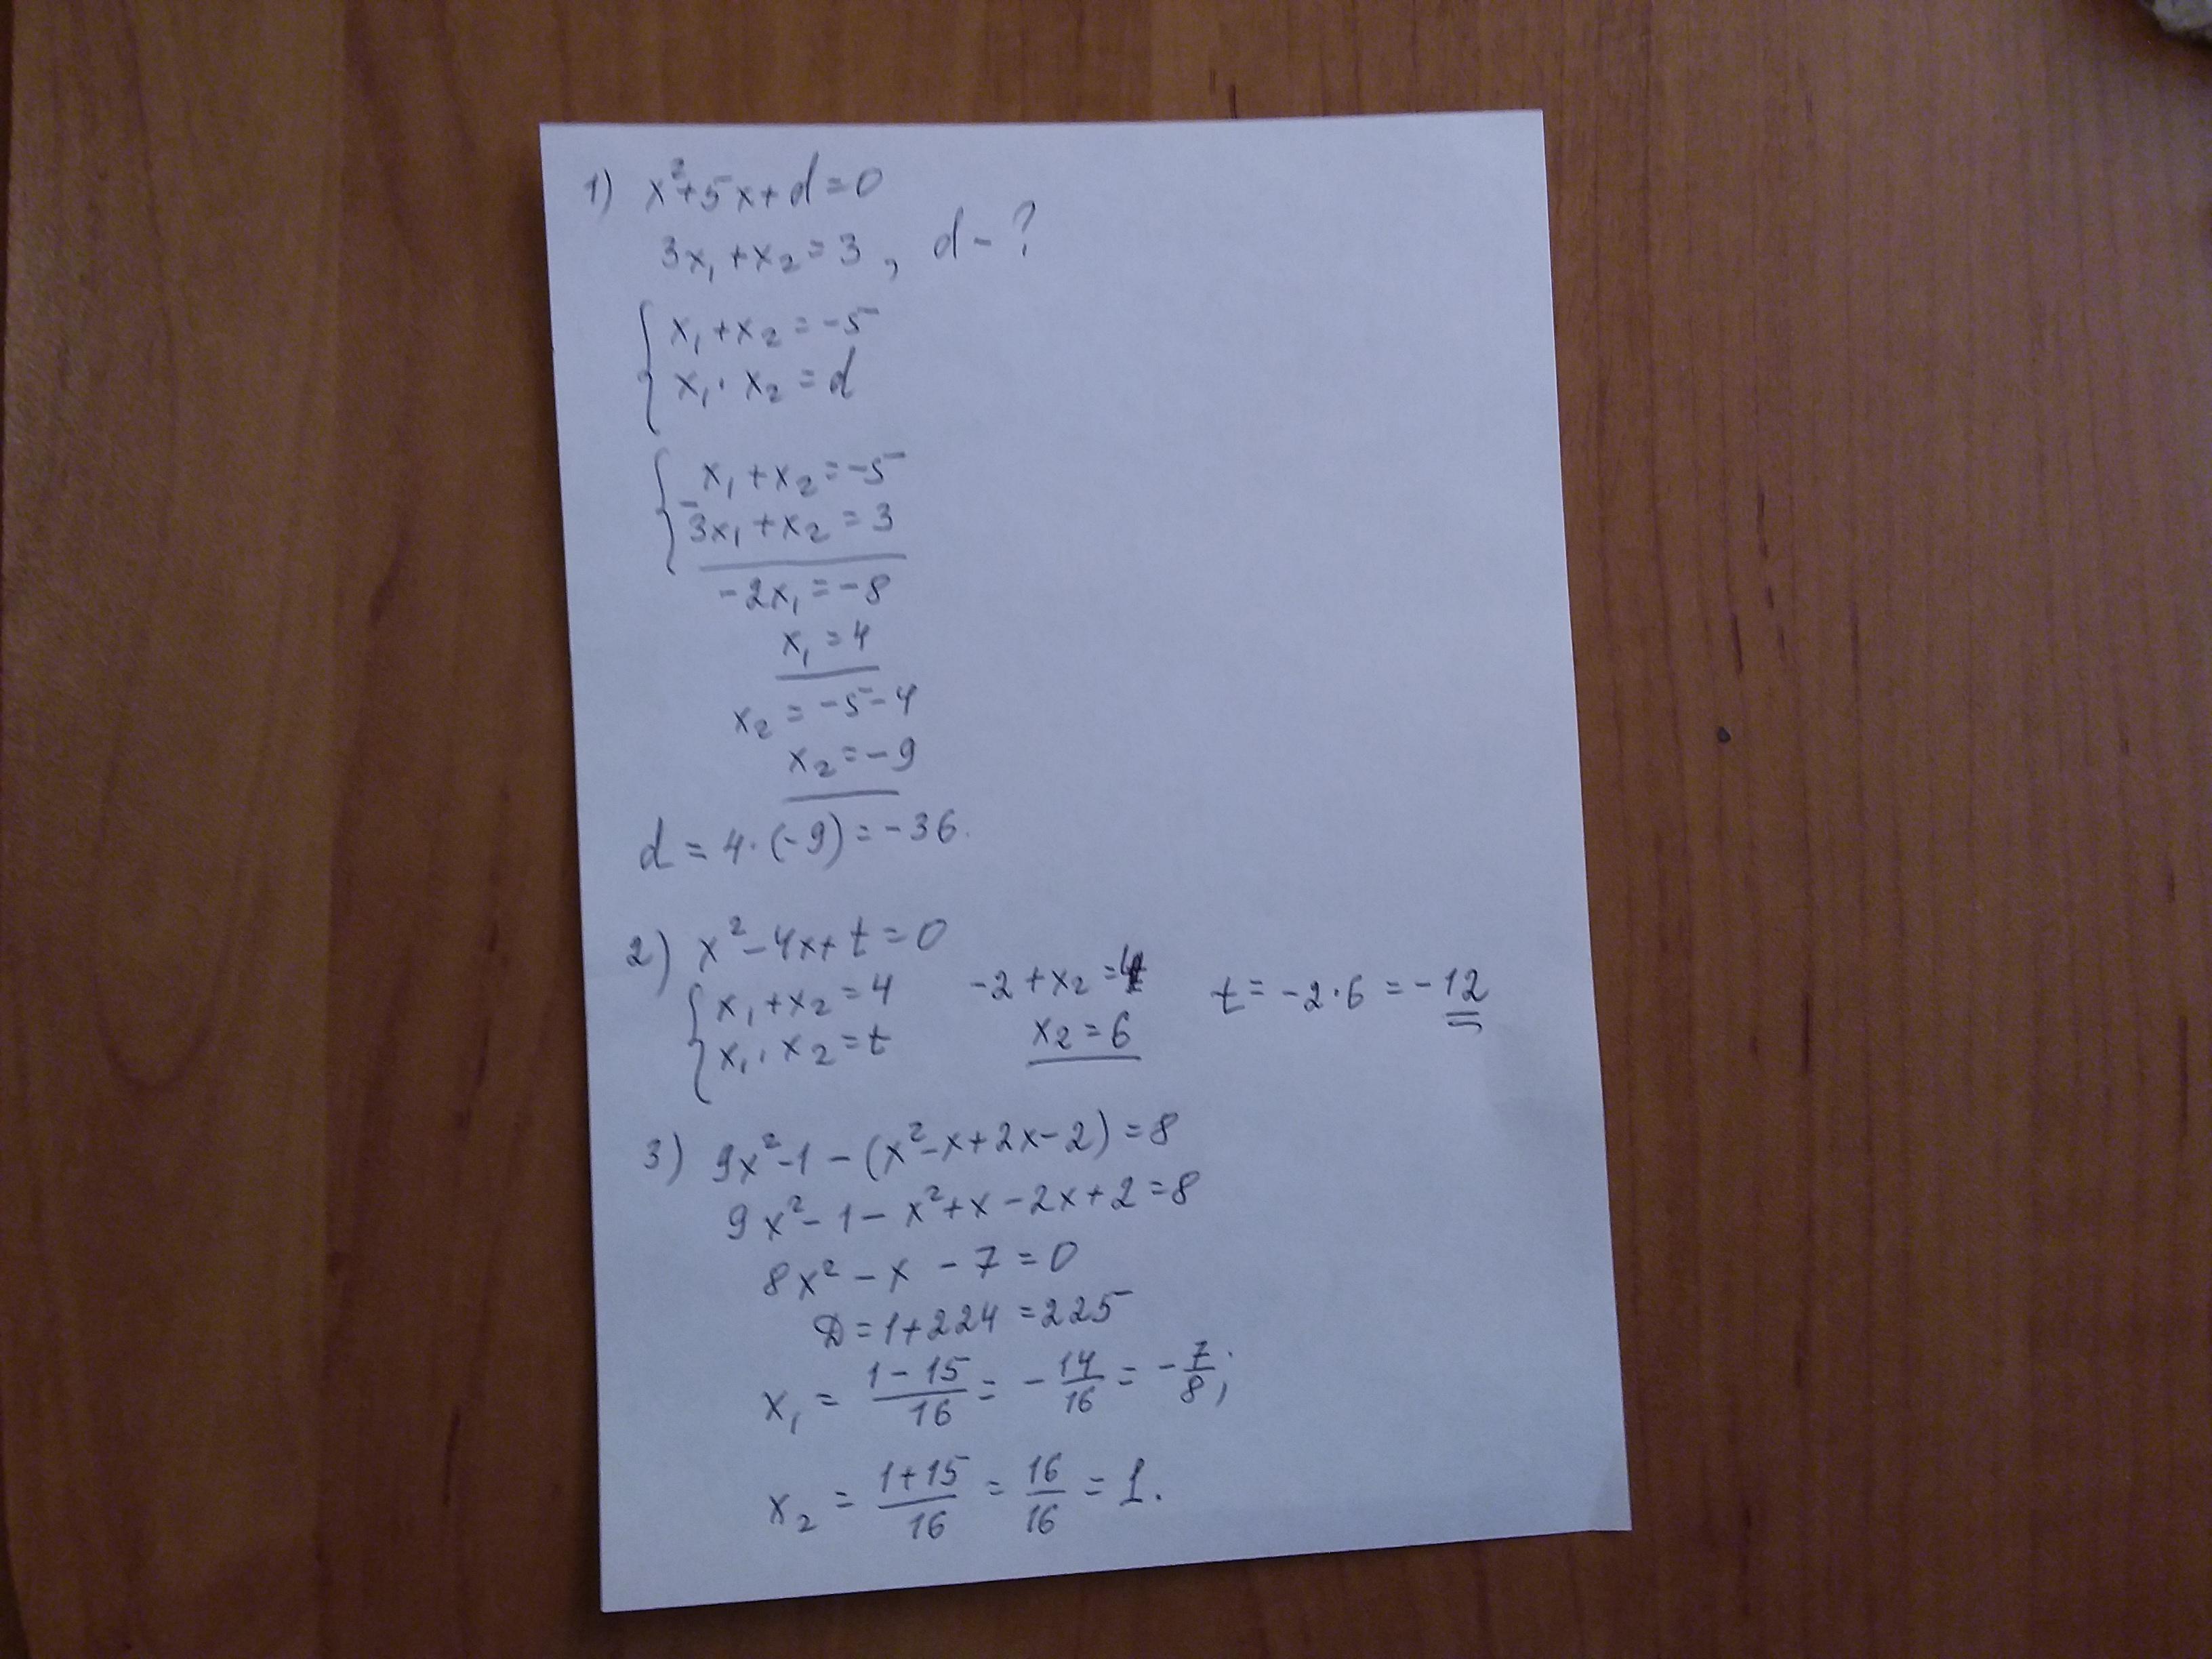 1) x²+5x+d=0
3x₁+x₂=3, d-?
{ x₁+x₂=-5
x₁·x₂=d
{ x₁+x₂=-5
- 3x₁+x₂=3
-2x₁=-8
x₁=4
x₂=-5-4
x₂=-9
d=4·(-9)=-36.
2) x²-4x+t=0
{ x₁+x₂=4 -2+x₂=4 t=-2·6=-12
x₁·x₂=t x₂=6
3) 9x²-1-(x²-x+2x-2)=8
9x²-1-x²+x-2x+2=8
8x²-x-7=0
D=1+224=225
x₁=(1-15)/16=-14/16=-7/8;
x₂=(1+15)/16=16/16=1.